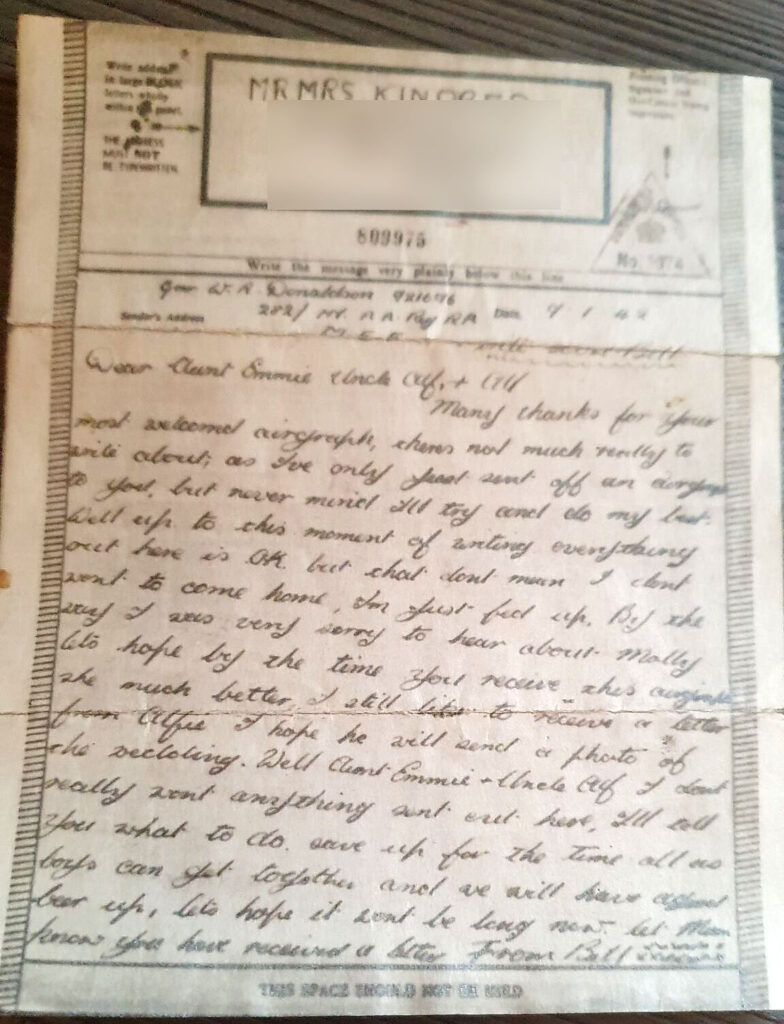 Write address
in large BLOCK
letters wholly
within panel.
THE ADDRESS
MUST NOT
BE TYPEWRITTEN
MR MRS KINDRED
809975
No.
Write the message very plainly below this line
Gnr W. R. Donaldson 921696
Sender's Address 282/ HY. A A Bty RA Date 9 1 42
M. E. F
Dear Aunt Emmie Uncle Alf, + All
Many thanks for your
most welcomed airgraph, theres not much really to
write about; as I've only just sent off an airgraph
to you, but never mind I'll try and do my best.
Well up to this moment of writing everything
out here is OK. but that dont mean I dont
want to come home, Im just fed up, By the
way I was very sorry to hear about Molly
lets hope by the time you receive this airgraph
she much better. I still like to receive a letter
from Alfie I hope he will send a photo of
the wedding. Well Aunt Emmie + Uncle Alf I dont
really want anything sent out here, I'll tell
you what to do. save up for the time all us
boys can get together and we will have a good
beer up, lets hope it wont be long now. let Mum
know you have received a letter From Bill
THIS SPACE SHOULD NOT BE USED